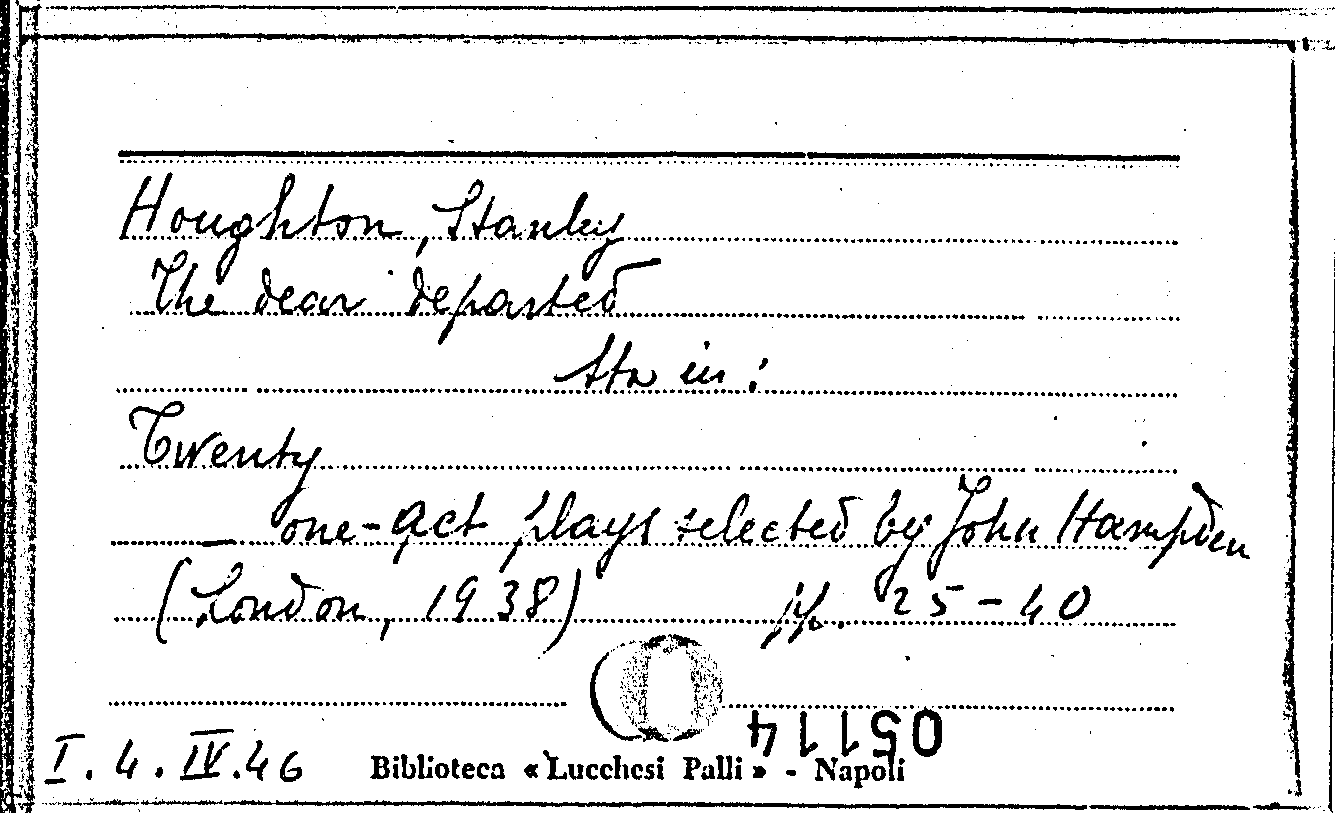 Houghton, Stanley
The dear departed
Sta in:
Twenty
_ one-act plays selected by John Hampden
(London, 1938) pp. 25-40
05114
I.4.IV.46 Biblioteca «Lucchesi Palli» - Napoli